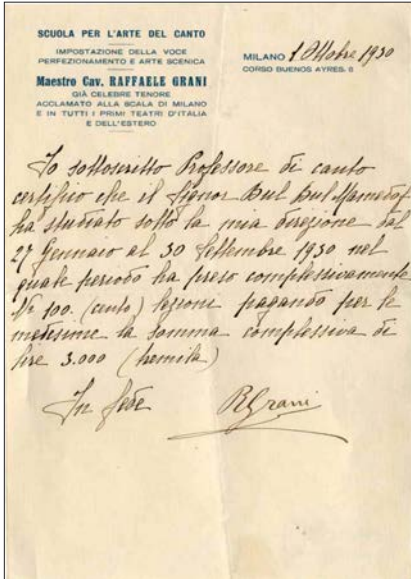 SCUOLA PER L'ARTE DEL CANTO
IMPOSTAZIONE DELLA VOCE
PERFEZIONAMENTO E ARTE SCENICA
Maestro Cav. RAFFAELE GRANI
GIÀ CELEBRE TENORE
ACCLAMATO ALLA SCALA DI MILANO
E IN TUTTI I PRIMI TEATRI D'ITALIA
E DELL'ESTERO
MILANO 1 Ottobre 1930
CORSO BUENOS AYRES, 8
Io sottoscritto Professore di canto
certifico che il Signor Bul Bul Mamedof
ha studiato sotto la mia direzione dal
27 Gennaio al 30 Settembre 1930 nel
quale periodo ha preso complessivamente
N° 100. (cento) lezioni pagando per le
medesime la somma complessiva di
lire 3.000 (tremila)
In fede
RGrani